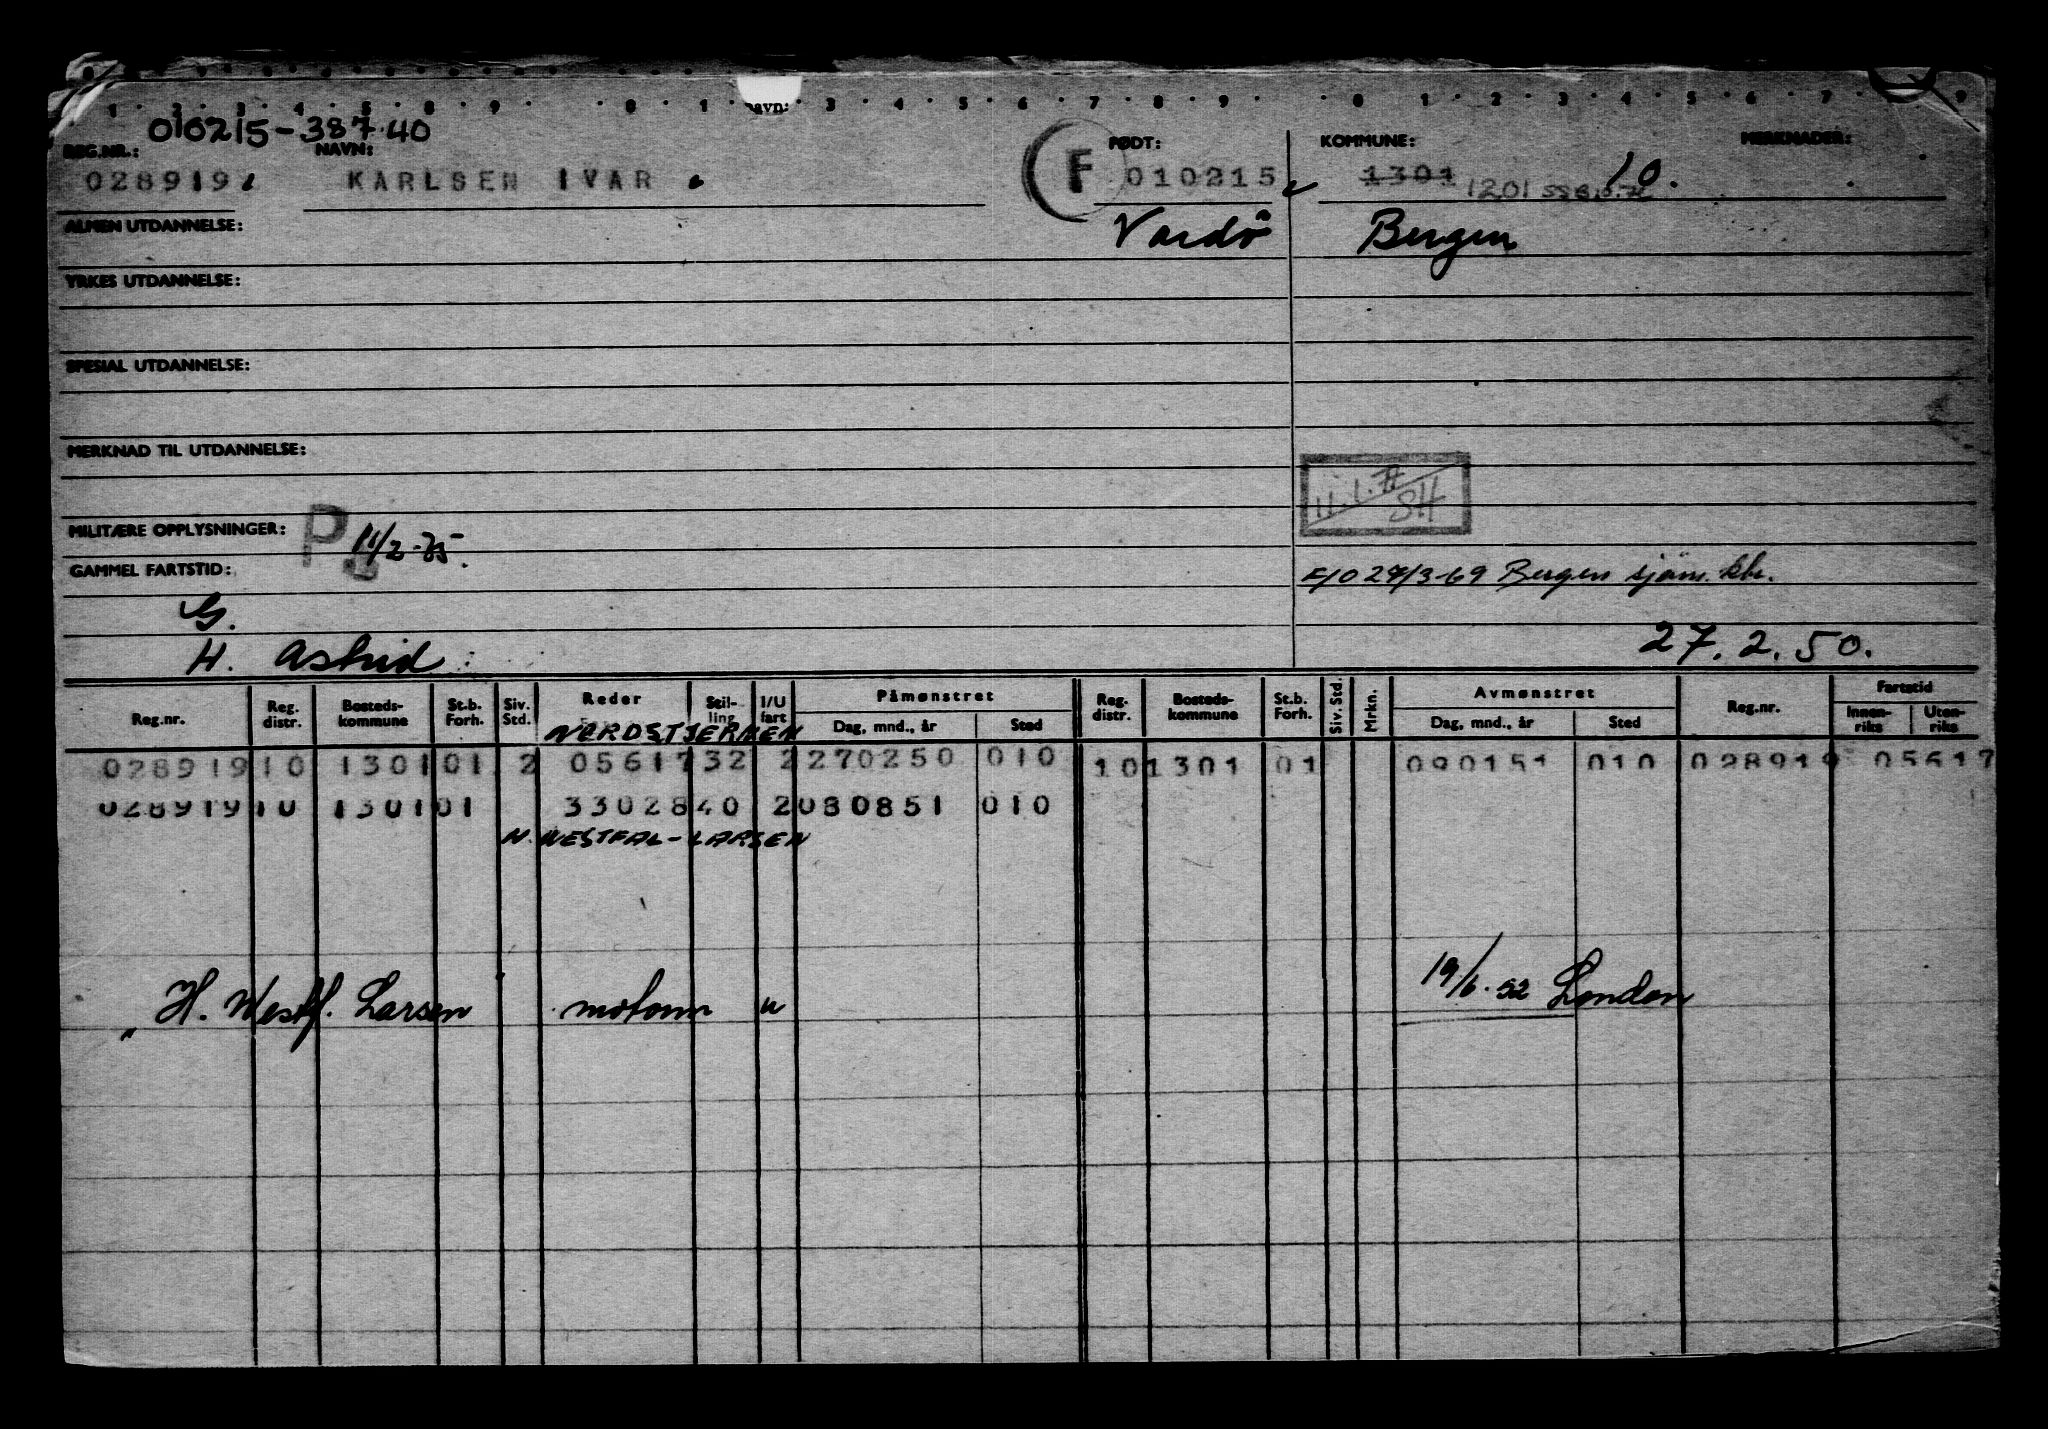 1 2 3 4 5 8 9 0 1 avn: 3 4 5 6 7 8 9 0 1 2 3 4 5 6 7 9
010215-387.40
REG.NR.: NAVN: FØDT: KOMMUNE: MERKNADER:
028919 KARLSEN IVAR F 010215 1301 1201 10.
ALMEN UTDANNELSE: Vardö Bergen
YRKES UTDANNELSE:
SPESIAL UTDANNELSE:
MERKNAD TIL UTDANNELSE:
11.1.77 SH
MILITÆRE OPPLYSNINGER: P 11/2-75.
GAMMEL FARTSTID: F/O 27/3-69 Bergen sjøm. ktr.
G.
H. Astrid 27.2.50.
Reg.nr. Reg. distr. Bosteds- kommune St.b. Forh. Siv. Std. Reder Stil- ling I/U fart Påmønstret Dag, mnd., år Sted Reg. distr. Bosteds- kommune St.b. Forh. Siv. Std. Mrkn. Avmønstret Dag, mnd., år Sted Reg.nr. Fartstid Innen- riks Uten- riks
NORDSTJERNEN
028919 10 1301 01 2 05617 32 2 270250 010 10 1301 01 090151 010 028919 05617
028919 10 1301 01 33028 40 2 080851 010
H. WESTFAL-LARSEN
19/6.52 London
" H. Westf. Larsen motorm u